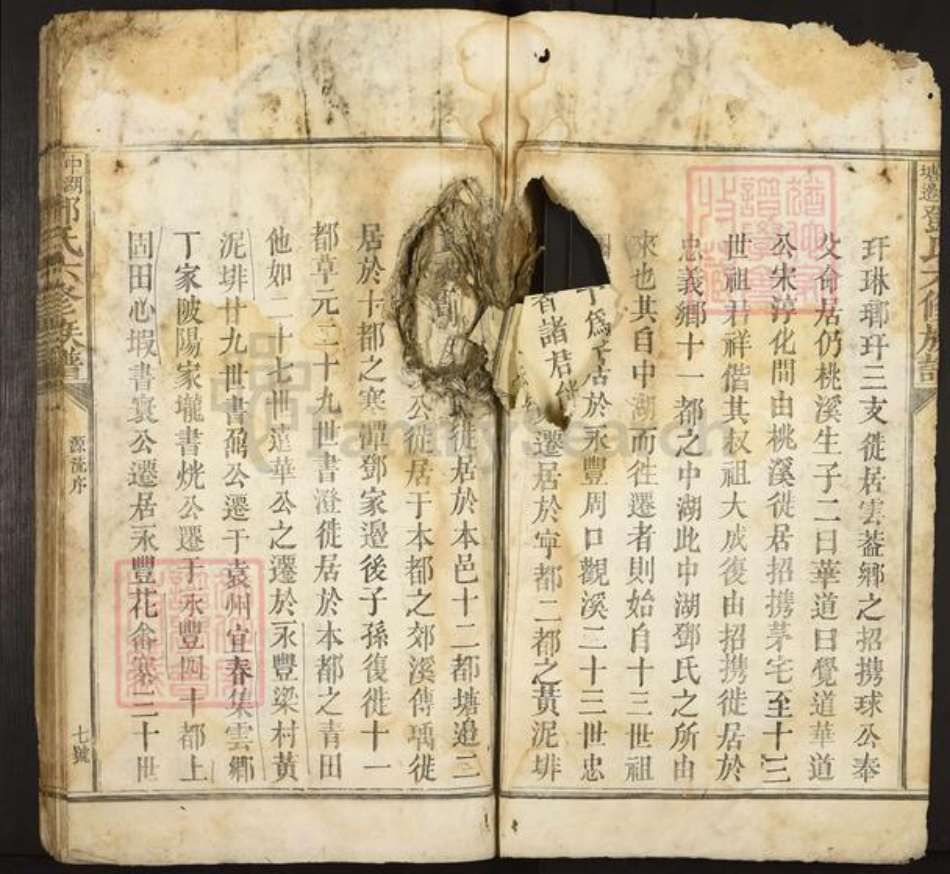 塘邉鄧氏六修族譜
玗琳瑯玗三支徙居雲蓋鄉之招携球公奉
父命居仍桃溪生子二曰華道曰覺道華道
公宋淳化間由桃溪徙居招携茅宅至十三
世祖君祥偕其叔祖大成復由招携徙居於
忠義鄉十一都之中湖此中湖鄧氏之所由
來也其自中湖而徃遷者則始自十三世祖
於永豐周口觀溪二十三世忠
諸君
遷居於寧都二都之黃泥排
徙居於本邑十二都塘邉三
公徙居于本都之郊溪傳瑀徙
居於十都之寒潭鄧家邉後子孫復徙十一
都草元二十九世書澄徙居於本都之青田
他如二十七世達華公之遷於永豐梁村黃
泥排廿九世書鵠公遷于袁州宜春集雲鄉
丁家陂陽家壠書烑公遷于永豐四十都上
固田心塅書寰公遷居永豐花畬寨三十世
中湖鄧氏六修族譜
源流序
七號
FamilySearch